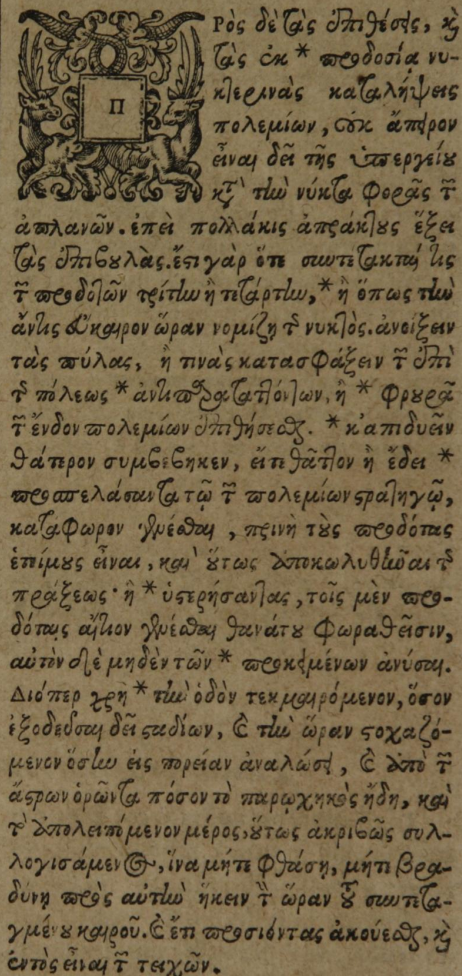 Π
Ρὸς δὲ τὰς ἐπιθέσεις, καὶ
τὰς ἐκ * προδοσίας νυ-
κτερινὰς καταλήψεις
πολεμίων, οὐκ ἄπειρον
εἶναι δεῖ τῆς ὑπεργείου
κατὰ τὴν νύκτα φορᾶς τῶν
ἀπλανῶν. ἐπεὶ πολλάκις ἀπράκτους ἕξει
τὰς ἐπιβουλάς. ἔστι γὰρ ὅτε συντετακται τις
τῶν προδοτῶν τρίτην ἢ τετάρτην, * ἢ ὅπως τὴν
ἄν τις εὔκαιρον ὥραν νομίζῃ τῆς νυκτὸς. ἀνοίξειν
τὰς πύλας, ἢ τινὰς κατασφάξειν τῶν ἐπὶ
τῆς πόλεως * ἀντιπαραταττόντων, ἢ * φρουρᾶ
τῶν ἔνδον πολεμίων ἐπιθήσεσθαι. * κἀπιδυεῖν
θάτερον συμβέβηκεν, εἴτε θᾶττον ἢ ἔδει *
προσπελάσαντα τῷ τῶν πολεμίων στρατηγῷ,
κατάφωρον γενέσθαι, πρινὴ τοὺς προδότας
ἑτοίμους εἶναι, καὶ οὕτως ἀποκωλυθῆναι τῆς
πράξεως· ἢ * ὑστερήσαντας, τοῖς μὲν προ-
δόταις αἴτιον γενέσθαι θανάτου φωραθεῖσιν,
αὐτὸν δὲ μηδὲν τῶν * προκειμένων ἀνύσαι.
Διόπερ χρὴ * τὴν ὁδὸν τεκμαιρόμενον, ὅσον
ἐξοδεῦσαι δεῖ σταδίων, καὶ τὴν ὥραν στοχαζό-
μενον ὅσην εἰς πορείαν ἀναλώσει, καὶ ἀπὸ τῶν
ἄστρων ὁρῶντα πόσον τὸ παρῳχηκὸς ἤδη, καὶ
τὸ ἀπολειπόμενον μέρος, οὕτως ἀκριβῶς συλ-
λογισάμενος, ἵνα μήτε φθάσῃ, μήτε βρα-
δύνῃ πρὸς αὐτὴν ἥκειν τὴν ὥραν τοῦ συντετα-
γμένου καιροῦ. καὶ ἔτι προσιόντας ἀκούεσθαι, καὶ
ἐντὸς εἶναι τῶν τειχῶν.